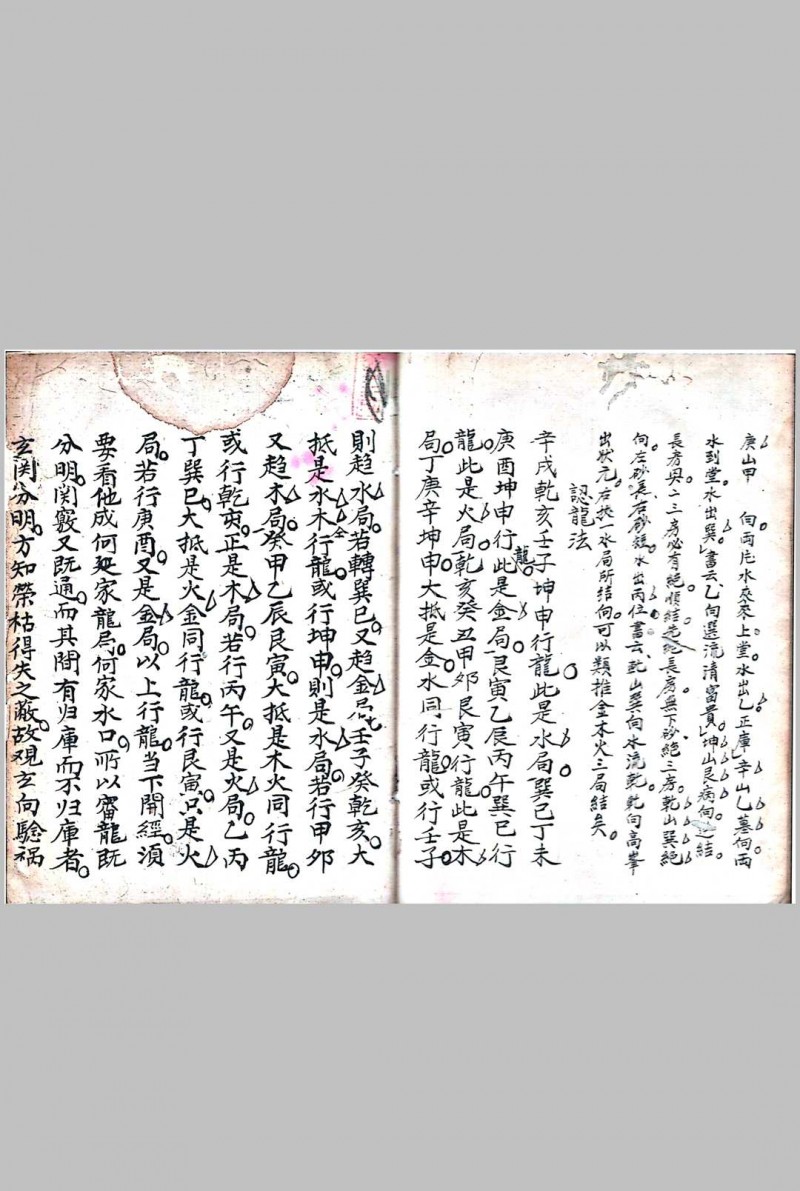 庚山甲 向两片水來來上堂水出乙正庫辛山乙墓向两
水到堂水出巽書云乙向選流清富貴坤山艮病向结
長房與二三房必有絕順结先絕長房無下砂絕三房乾山巽絕
向左砂長右砂短水出丙位書云乾山巽向水流乾乾向高峯
出狀元右挨一水局所结向可以類推金木火三局结矣
認龍法
辛戌乾亥壬子坤申行龍此是水局巽巳丁未
庚酉坤申行龍此是金局艮寅乙辰丙午巽巳行
龍此是火局乾亥癸丑甲夘艮寅行龍此是木
局丁庚辛坤申大抵是金水同行龍或行壬子
則趋水局若轉巽巳又趋金局壬子癸乾亥大
抵是水木仝行龍或行坤申則是水局若行甲夘
又趋木局癸甲乙辰艮寅大抵是木火同行龍
或行乾亥正是木局若行丙午又是火局乙丙
丁巽巳大抵是火金同行龍或行艮寅只是火
局若行庚酉又是金局以上行龍當下開經須
要看他成何家龍局何家水口所以審龍既
分明関竅又既通而其間有归庫而不归庫者
玄関分明方知榮枯得失之蔽故观玄向驗祸